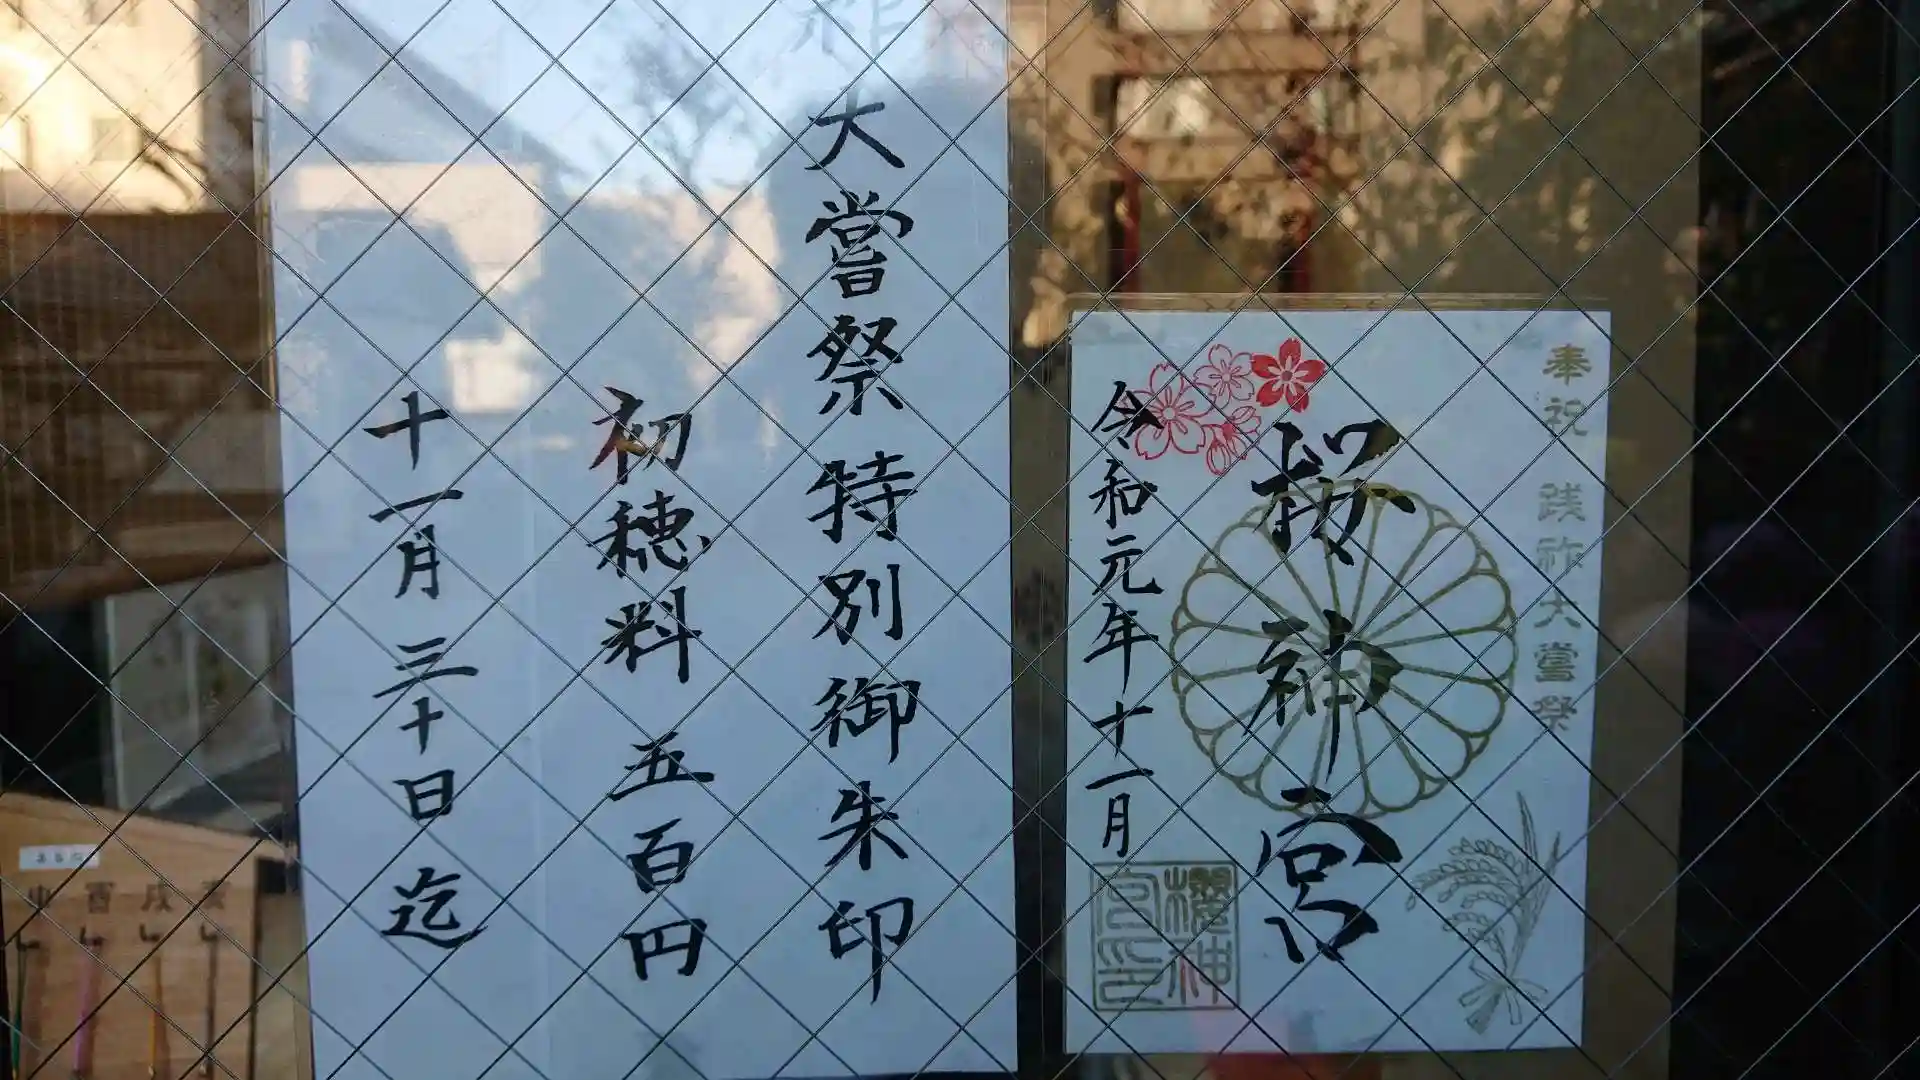 奉祝 践祚大嘗祭
桜神宮
令和元年十一月
櫻神
宮之印
祚大嘗祭 特別御朱印
初穂料 五百円
十一月三十日迄
申 酉 戌 亥